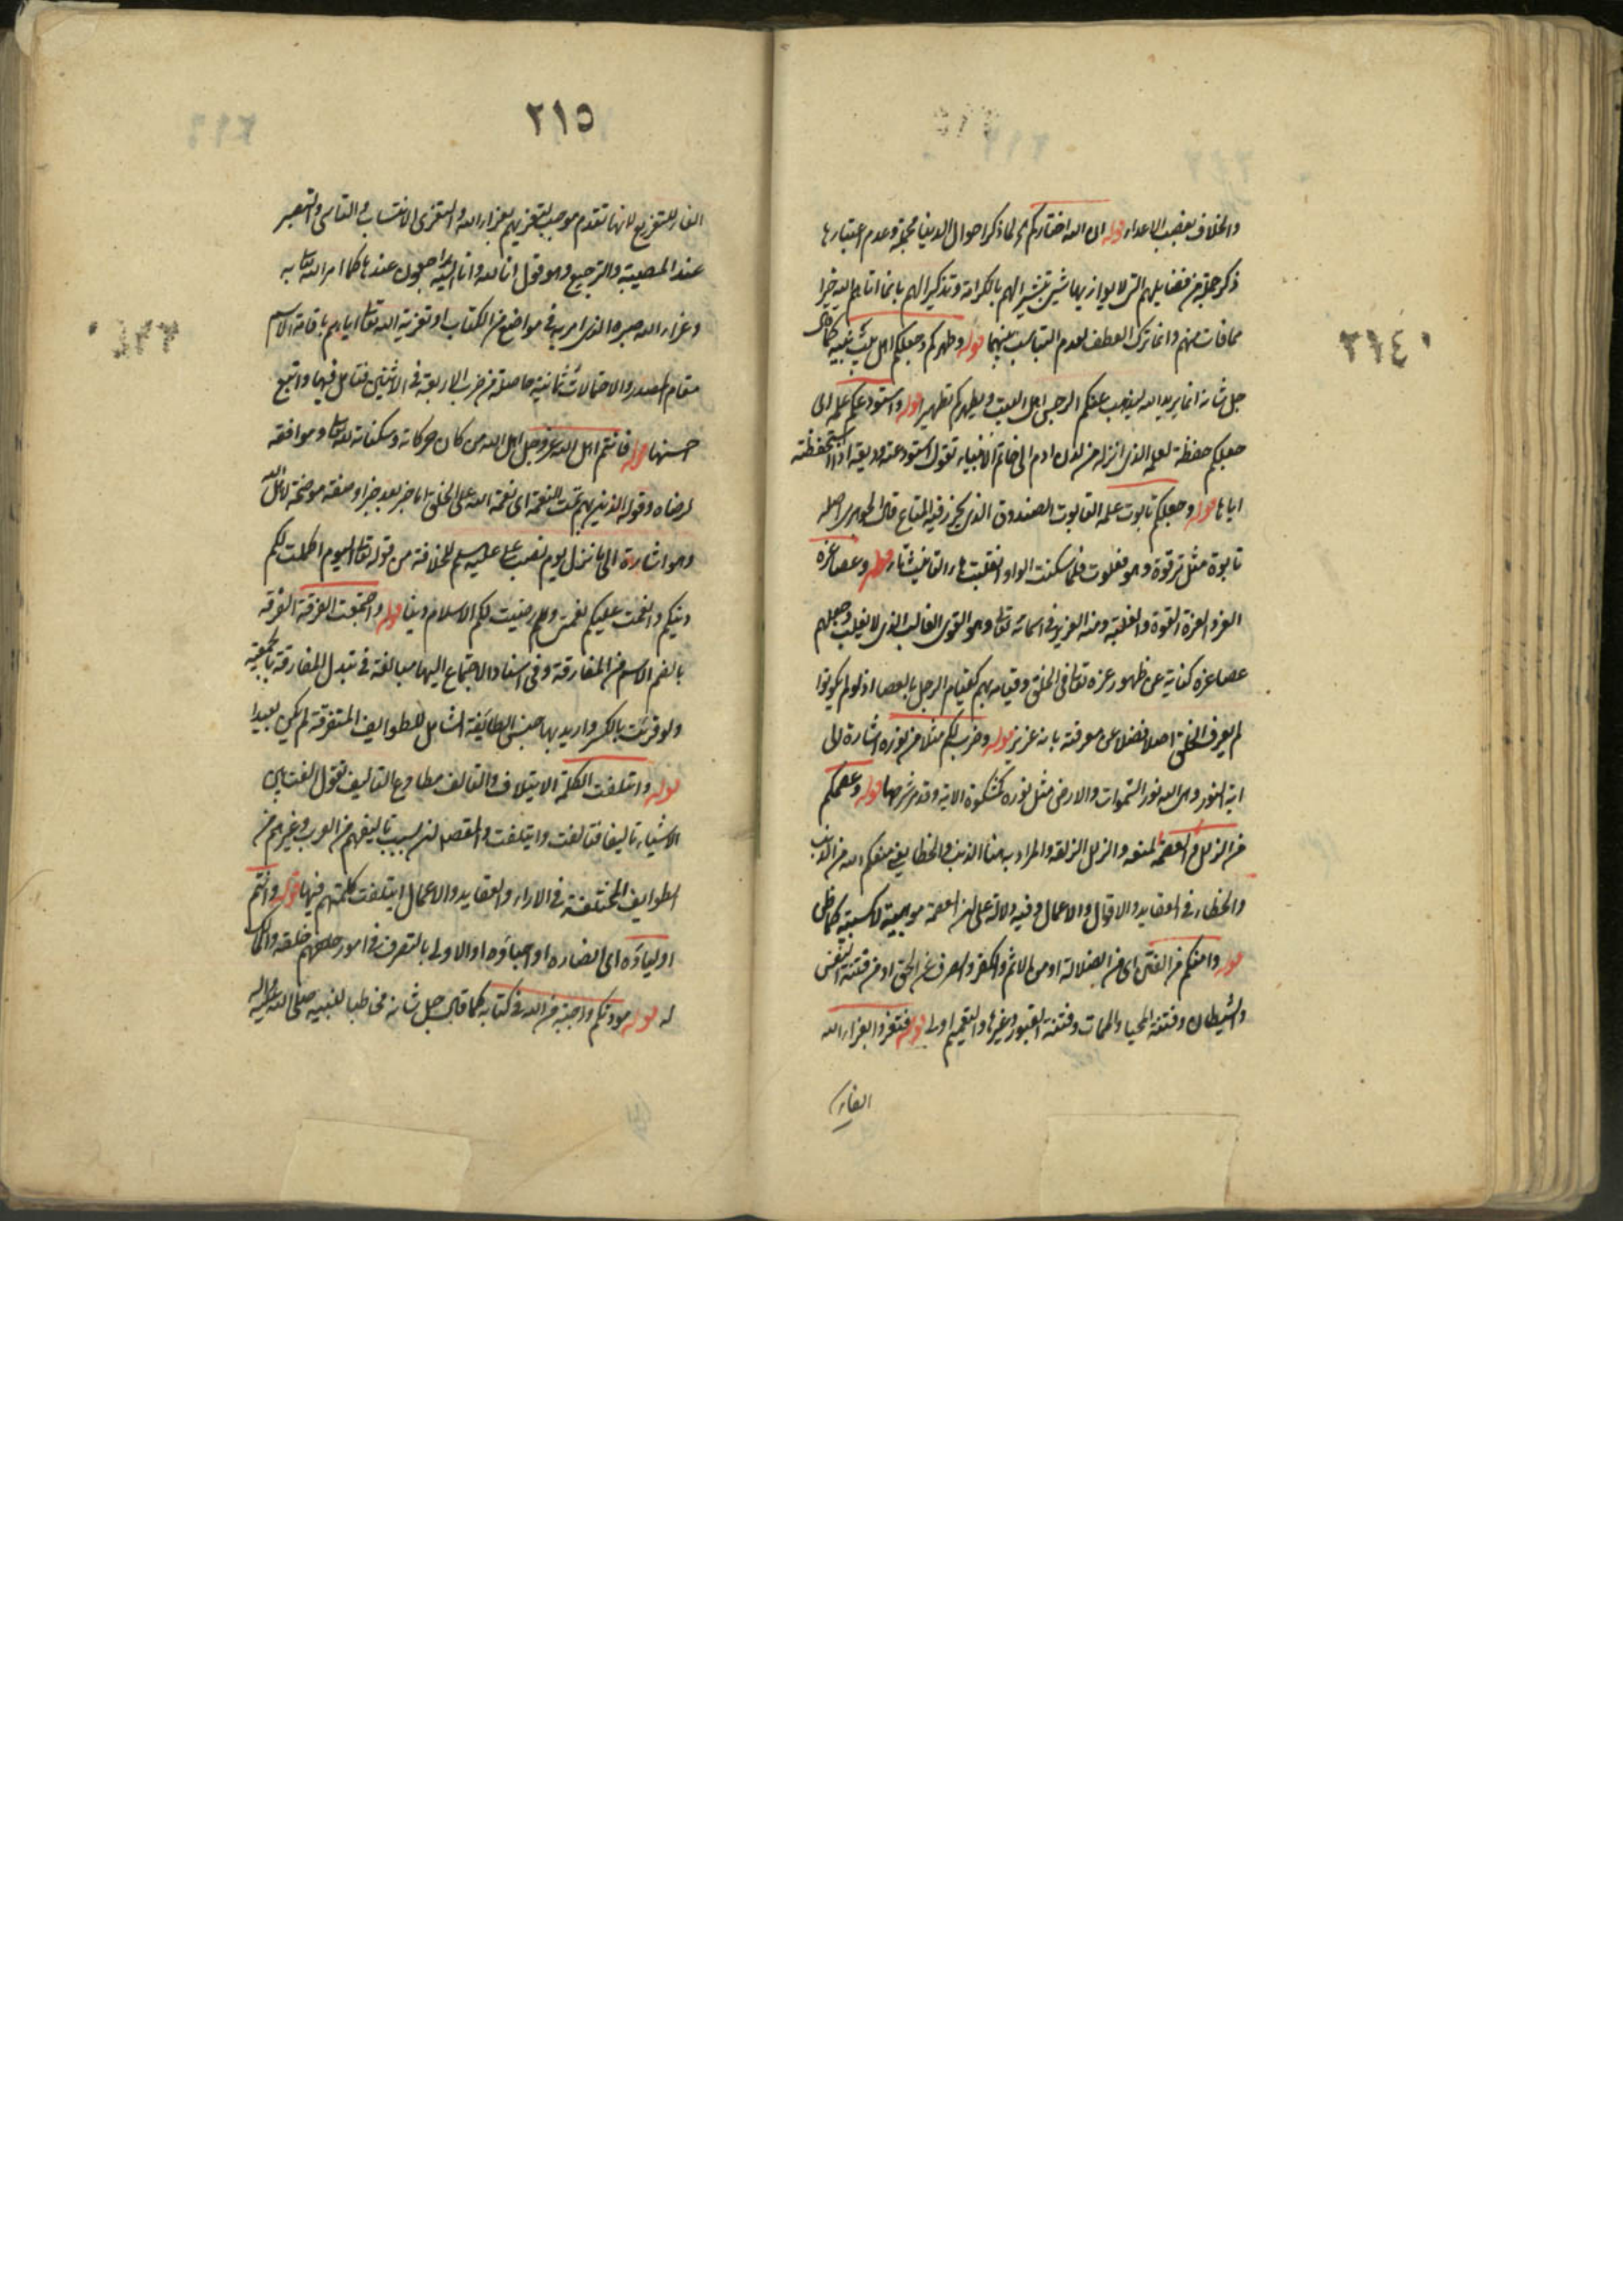 والخلاف بغضب الاعداء قوله ان الله اختاركم لما ذكر احوال الدنيا مجملة وعدم اعتبارها
ذكر جملة من فضايلهم التى لا يوازيها شىء تبشيرا لهم بالكرامة وتذكيرا لهم بانما اتاهم الله خيرا
مما فات منهم وانما ترك العطف لعدم التناسب بينهما قوله وطهركم وجعلكم اهل بيت نبيه كما قال
جل شانه انما يريد الله ليذهب عنكم الرجس اهل البيت ويطهركم تطهيرا قوله واستودعكم علمه اى
جعلكم حفظة لعلمه الذى انزله من لدن ادم الى خاتم الانبياء تقول استودعته وديعة اذا استحفظته
اياها قوله وجعلكم تابوت علمه التابوت الصندوق الذى يحرز فيه المتاع قال الجوهرى اصله
تابوة مثل ترقوة وهو فعلوت فلما سكنت الواو انقلبت هاء التانيث تاء قوله وعصا عزه
العز والعزة القوة والغلبة ومنه العزيز فى اسمائه تعالى وهو القوى الغالب الذى لا يغلب وجعلهم
عصا عزه كناية عن ظهور عزه تعالى فى الخلق وقيامه بهم كقيام الرجل بالعصا اذ لو لم يكونوا
لم يعرف الخلق اصلا فضلا عن معرفته بانه عزيز قوله وضرب لكم مثلا من نوره اشارة الى
اية النور وهى الله نور السموات والارض مثل نوره كمشكوة الاية وقد مر شرحها قوله وعصمكم
من الزلل العصمة المنعة والزلل الزلقة والمراد به هنا الذنب والخطا يعنى منعكم الله من الذنب
والخطاء فى العقايد والاقوال والاعمال وفيه دلالة على ان العصمة موهبية لا كسبية كما ظن
قوله وامنكم من الفتن اى من الضلالة او من الاثم والكفر والصرف عن الحق او من فتنة النفس
والشيطان وفتنة المحيا والممات وفتنة القبور وغيرها والتعميم اولى قوله فتعزوا بعزاء الله
الفاء
٢١٤
٢١٥
الفاء للتفريع لان ما تقدم موجب لتعزيهم بعزاء الله والتعزى الانتساب والتاسى والتصبر
عند المصيبة والترجيع وهو قول انا لله وانا اليه راجعون عندها كما امر الله تعالى به
وعزاء الله صبره الذى امر به فى مواضع من الكتاب او تعزية الله تعالى اياهم باقامة الاسم
مقام المصدر والاحتمالات ثمانية حاصلة من ضرب الاربعة فى الاثنين فتامل فيها واتبع
احسنها قوله فانتم اهل الله عز وجل اهل الله من كان حركاته وسكناته لله تعالى وموافقة
لرضاه وقوله الذين بهم تمت النعمة اى نعمة الله على الخلق اما خبر بعد خبر او صفة موضحة لاهل الله
وهو اشارة الى ما نزل يوم نصب على عليه السلم للخلافة من قوله تعالى اليوم اكملت لكم
دينكم واتممت عليكم نعمتى ورضيت لكم الاسلام دينا قوله واجتمعت الفرقة الفرقة
بالضم الاسم من المفارقة وفى اسناد الاجتماع اليها مبالغة فى تبدل المفارقة بالجمعية
ولو قرئت بالكسر واريد بها جنس الطائفة الشامل للطوايف المتفرقة لم يكن بعيدا
قوله وائتلفت الكلمة الايتلاف والتالف مطاوع التاليف تقول الفت بين
الاشياء تاليفا فتالفت وايتلفت والمقصود ان بسبب تاليفهم من العرب وغيرهم من
الطوايف المختلفة فى الاراء والعقايد والاعمال ايتلفت كلمتهم فيها قوله وانتم
اولياؤه اى انصاره او احباؤه او الاولى بالتصرف فى امور خلقه
له قوله مودتكم واجبة من الله فى كتابه كما قال جل شانه مخاطبا لنبيه صلى الله عليه واله